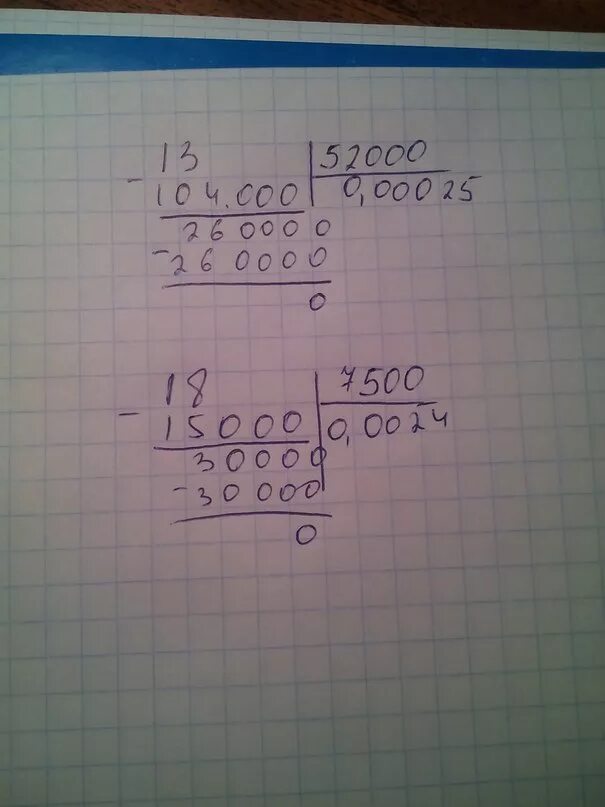 13 52000
- 104.000 0,00025
260000
- 260000
0
18 7500
- 15000 0,0024
30000
- 30000
0